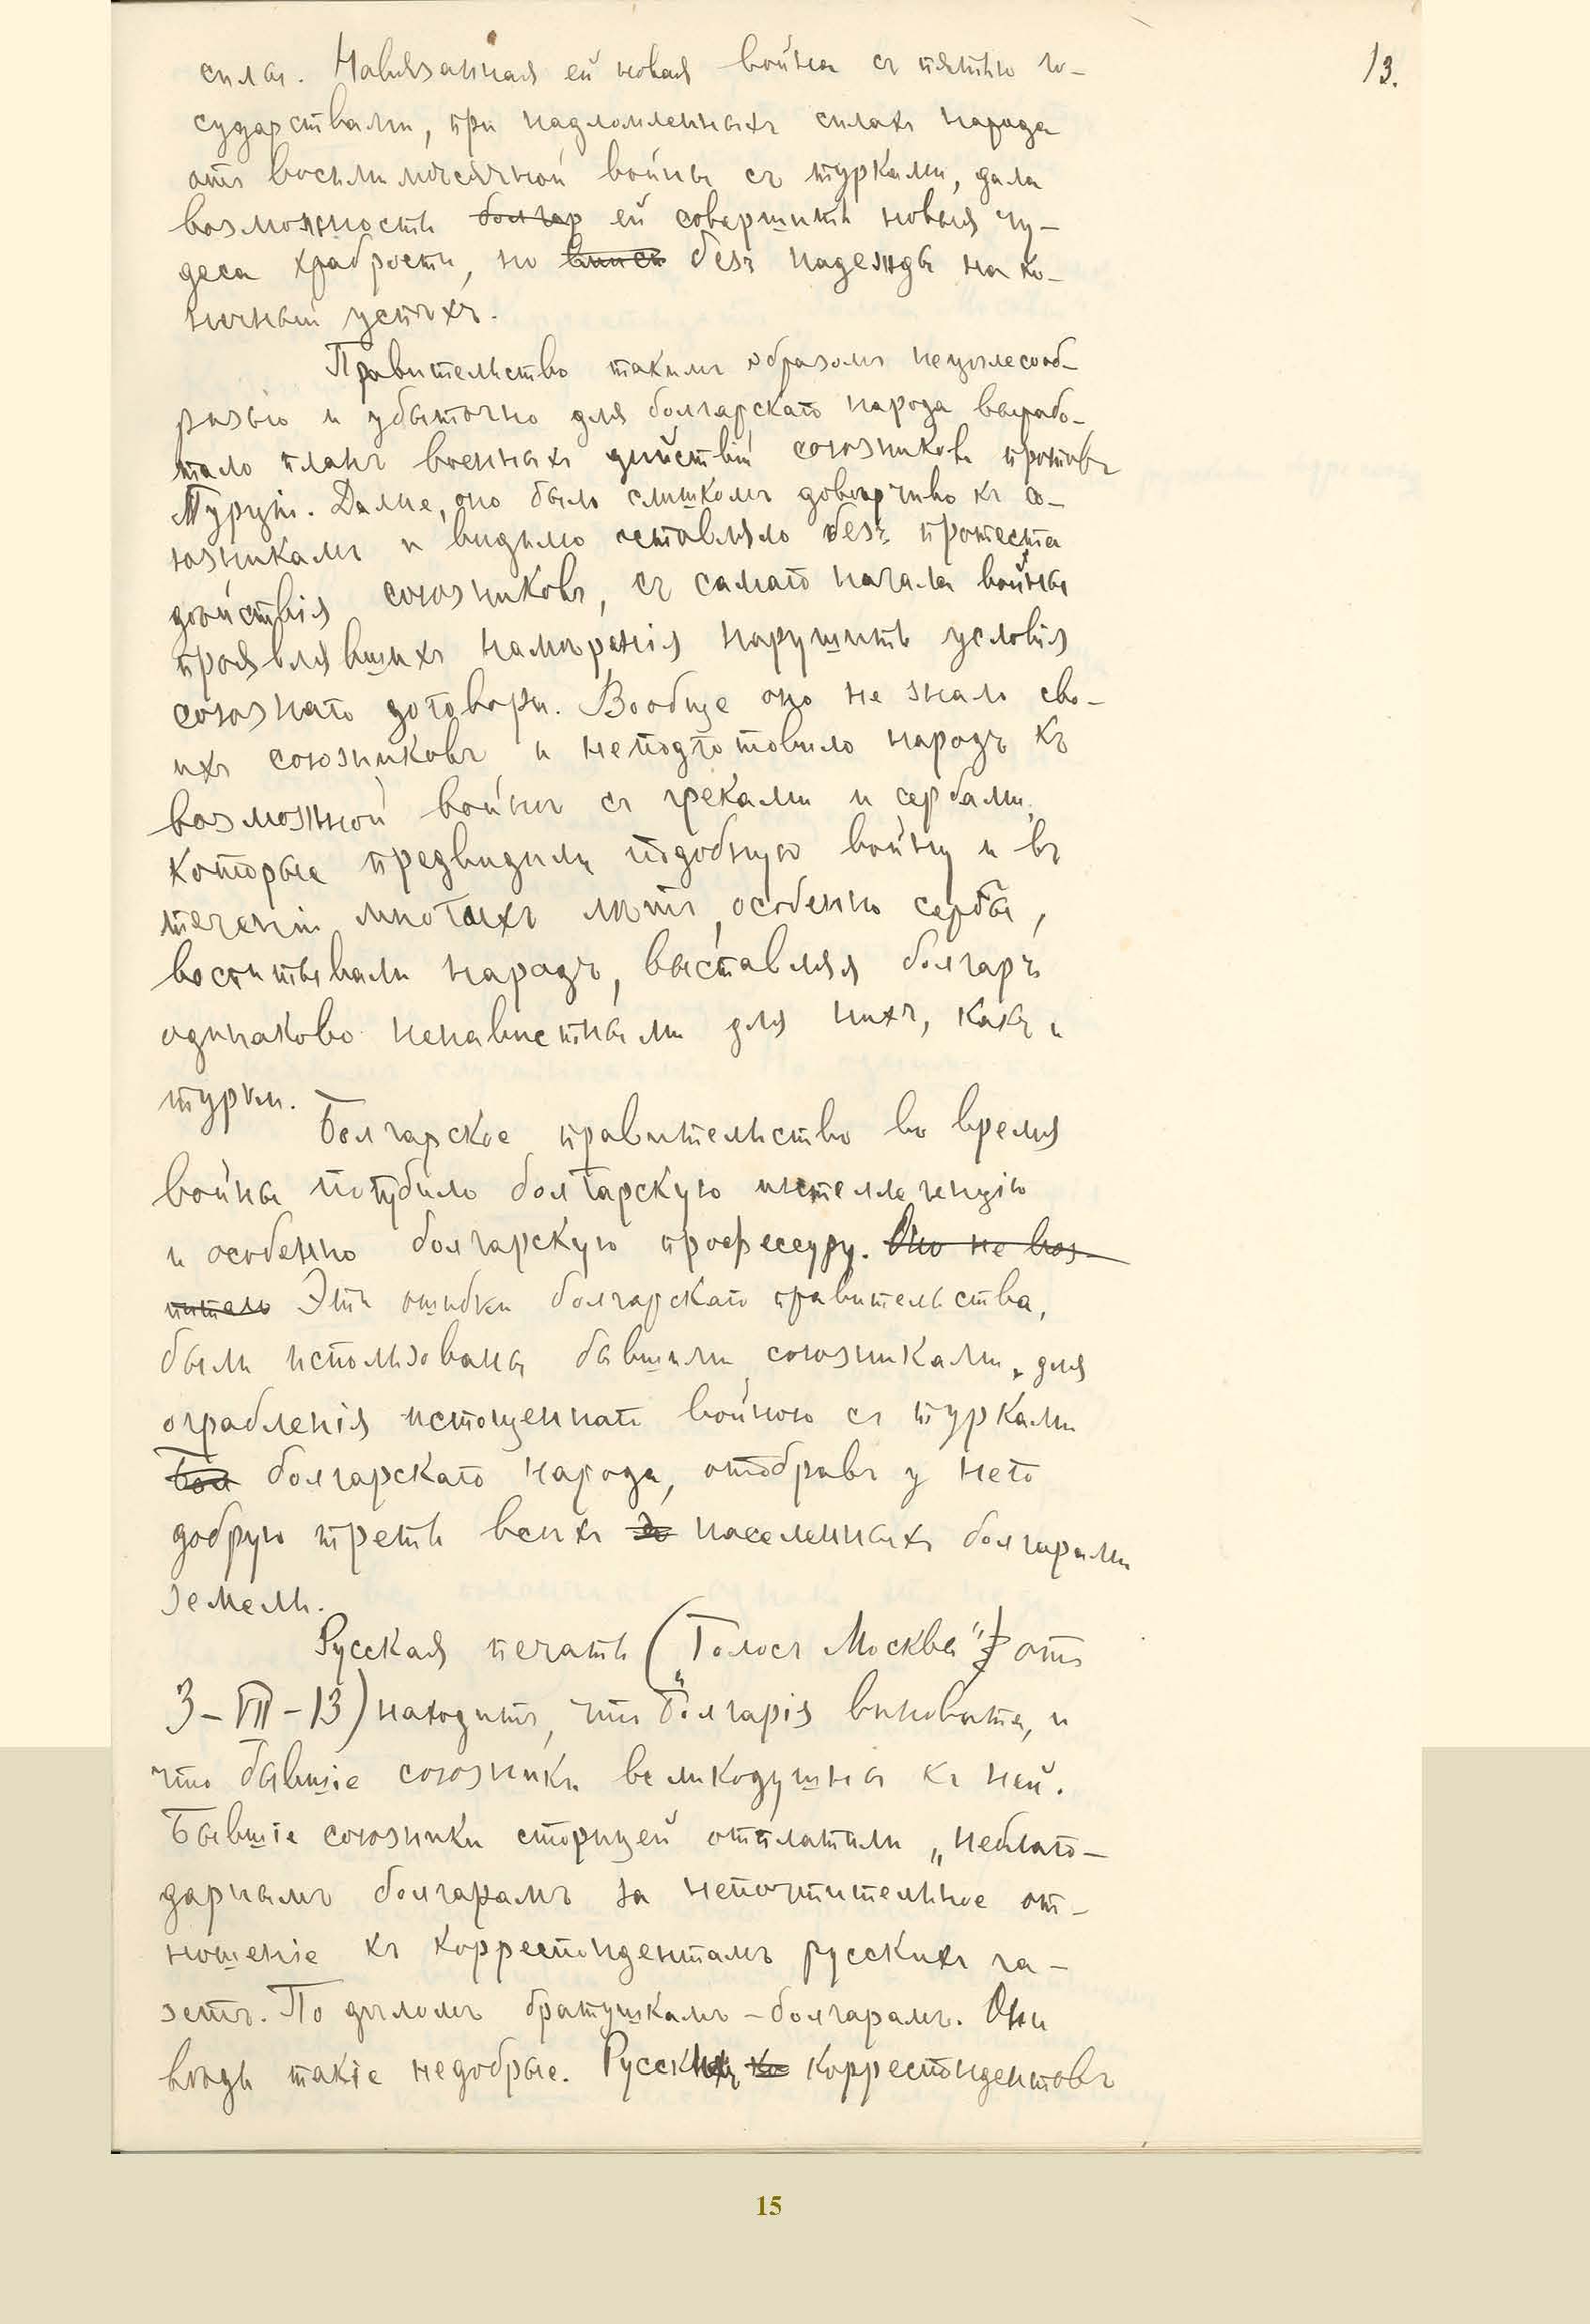 13.
силы. Навязанная ей новая война съ пятью го-
сударствами, при надломленныхъ силахъ народа
отъ восьмимѣсячной войны съ турками, дала
возможность болгар ей совершить новыя чу-
деса храбрости, но безъ надежды на ко-
нечный успѣхъ.
Правительство такимъ образомъ нецѣлесооб-
разно и убыточно для болгарскаго народа вырабо-
тало планъ военныхъ дѣйствій союзниковъ противъ
Турціи. Далѣе, оно было слишкомъ довѣрчиво къ со-
юзникамъ и видимо оставляло безъ протеста
дѣйствія союзниковъ, съ самаго начала войны
проявлявшихъ намѣренія нарушить условія
союзнаго договора. Вообще оно не знало сво-
ихъ союзниковъ и неподготовило народъ къ
возможной войнѣ съ греками и сербами,
которые предвидѣли подобную войну и въ
теченіи многихъ лѣтъ, особенно сербы,
воспитывали народъ, выставляя болгаръ
одинаково ненавистными для нихъ, какъ и
турки.
Болгарское правительство во время
войны погубило болгарскую интеллигенцію
и особенно болгарскую профессуру. Оно не вос-
питало Эти ошибки болгарскаго правительства,
были использованы бывшими союзниками, для
ограбленія истощеннаго войною съ турками
Бол болгарскаго народа, отобравъ у него
добрую треть всѣхъ населенныхъ болгарами
земель.
Русская печать („Голосъ Москвы" отъ
3-VII-13) находитъ, что Болгарія виновата, и
что бывшіе союзники великодушны къ ней.
Бывшіе союзники сторицей отплатили „неблаго-
дарнымъ болгарамъ за непочтительное от-
ношеніе къ корреспондентамъ русскихъ га-
зетъ. По дѣломъ братушкамъ-болгарамъ. Они
вѣдь такіе недобрые. Русскихъ ко корреспондентовъ
15